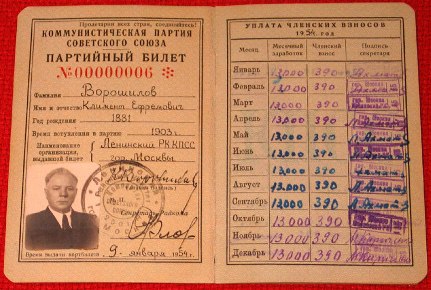 Пролетарии всех стран, соединяйтесь!
КОММУНИСТИЧЕСКАЯ ПАРТИЯ
СОВЕТСКОГО СОЮЗА
ПАРТИЙНЫЙ БИЛЕТ
№00000006
Фамилия Ворошилов
Имя и отчество Климент Ефремович
Год рождения 1881
Время вступления в партию 1903 г.
Наименование организации, выдавшей билет Ленинский РК КПСС
гор. Москвы
Секретарь Райкома
Время выдачи партбилета 9 января 1954 г.
УПЛАТА ЧЛЕНСКИХ ВЗНОСОВ
1954 год
Месяц Месячный заработок Членский взнос Подпись секретаря
Январь 13.000 390
Февраль 13.000 390
Март 13.000 390
Апрель 13.000 390
Май 13.000 390
Июнь 13.000 390
Июль 13.000 390
Август 13.000 390
Сентябрь 13.000 390
Октябрь 13.000 390
Ноябрь 13.000 390
Декабрь 13.000 390